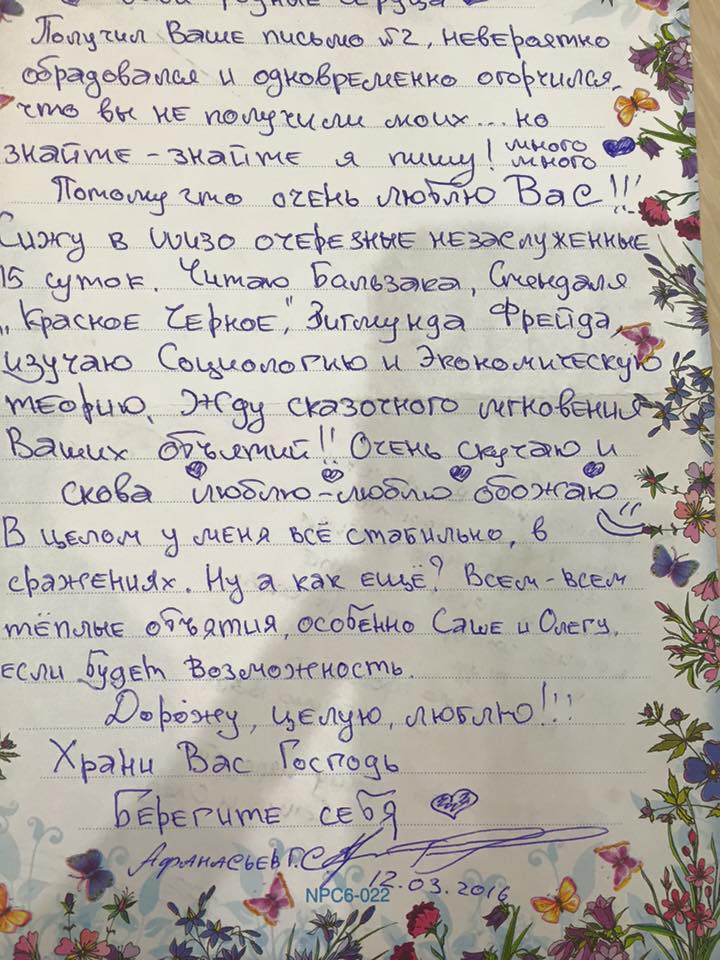 Получил Ваше письмо №2, невероятно
обрадовался и одновременно огорчился,
что вы не получили моих... но
знайте - знайте я пишу! много много
Потому что очень люблю Вас!!!
Сижу в ШИЗО очерезные незаслуженные
15 суток. Читаю Бальзака, Стендаля
„Красное Черное", Зигмунда Фрейда,
изучаю Социологию и Экономическую
теорию. Жду сказочного мгновения
Ваших объятий!! Очень скучаю и
снова люблю-люблю обожаю
В целом у меня всё стабильно, в
сражениях. Ну а как ещё? Всем-всем
тёплые объятия, особенно Саше и Олегу,
если будет возможность.
Дорожу, целую, люблю!!!
Храни Вас Господь
Берегите себя
Афанасьев Г.С
12.03.2016
NPC6-022